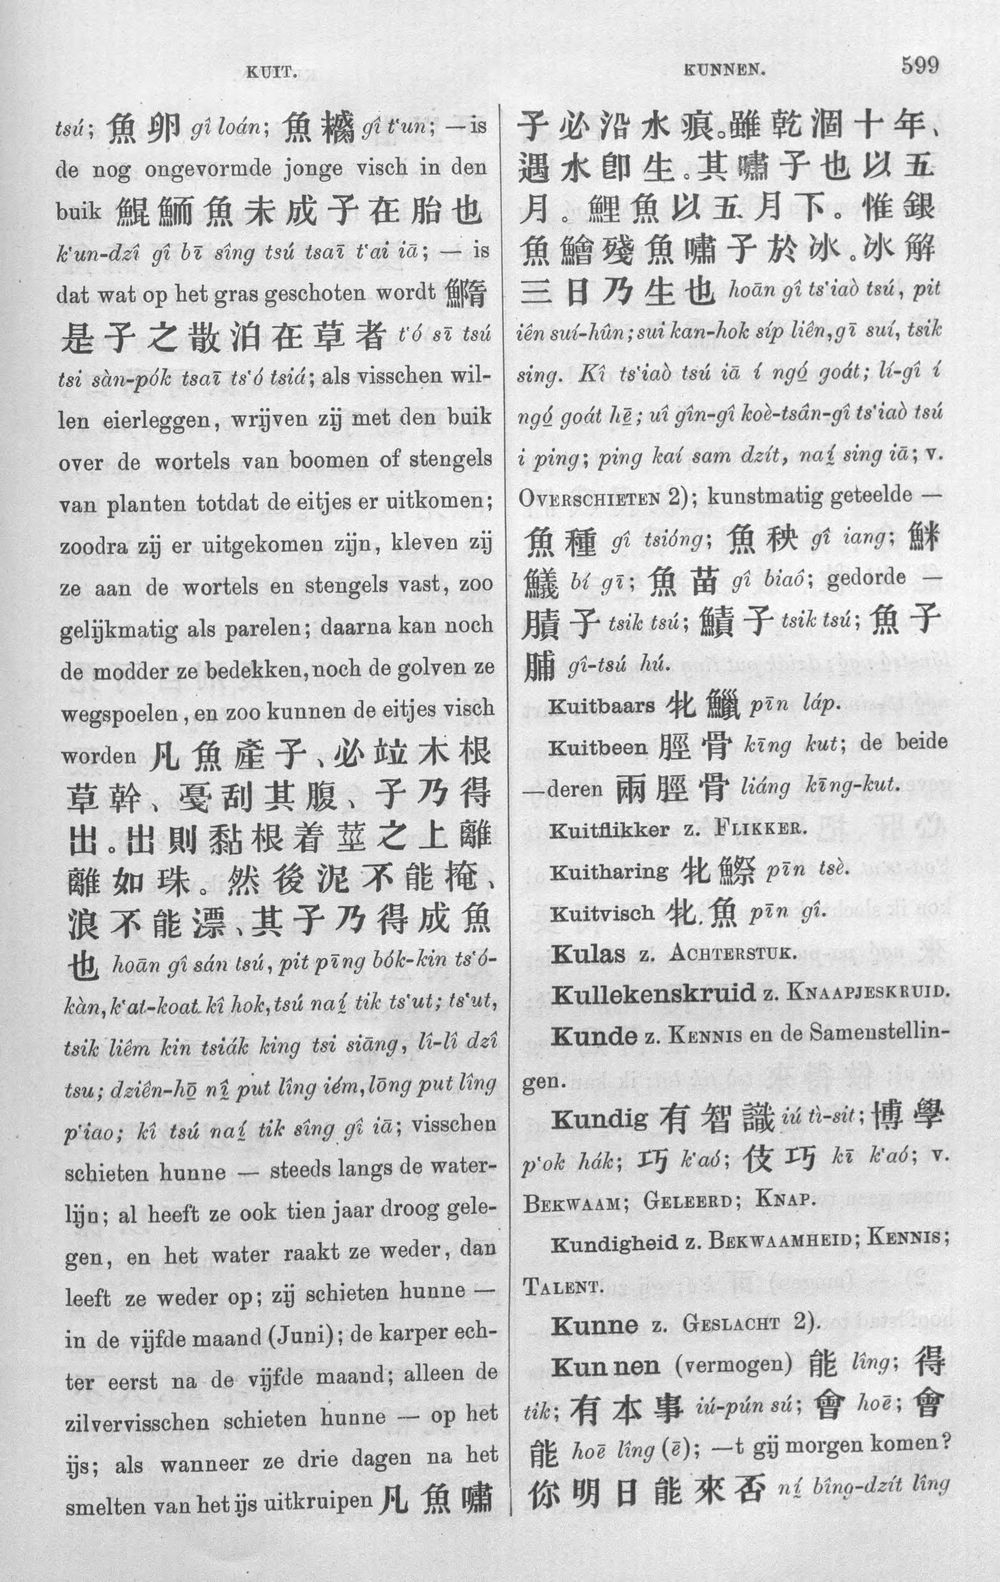 KUIT.
KUNNEN.
599
tsú; 魚卵 gî loán; 魚 gî t‘un; — is
de nog ongevormde jonge visch in den
buik 鯤鮞魚未成子在胎也
k‘un-dzî gî bī sîng tsú tsaī t‘ai iā; — is
dat wat op het gras geschoten wordt
是子之散泊在草者 t‘ó sī tsú
tsi sàn-pók tsaī ts‘ó tsiá; als visschen wil-
len eierleggen, wrijven zij met den buik
over de wortels van boomen of stengels
van planten totdat de eitjes er uitkomen;
zoodra zij er uitgekomen zijn, kleven zij
ze aan de wortels en stengels vast, zoo
gelijkmatig als parelen; daarna kan noch
de modder ze bedekken, noch de golven ze
wegspoelen, en zoo kunnen de eitjes visch
worden 凡魚產子、必竝木根
草幹、戞刮其腹、子乃得
出。出則黏根着莖之上離
離如珠。然後泥不能掩、
浪不能漂、其子乃得成魚
也 hoān gî sán tsú, pit pīng bók-kin ts‘ó-
kàn, k‘at-koat kî hok, tsú naí tik ts‘ut; ts‘ut,
tsik liêm kin tsiák king tsi siāng, lî-lî dzî
tsu; dziên-hō nî put lîng iém, lōng put lîng
p‘iao; kî tsú naí tik sîng gî iā; visschen
schieten hunne — steeds langs de water-
lijn; al heeft ze ook tien jaar droog gele-
gen, en het water raakt ze weder, dan
leeft ze weder op; zij schieten hunne —
in de vijfde maand (Juni); de karper ech-
ter eerst na de vijfde maand; alleen de
zilvervisschen schieten hunne — op het
ijs; als wanneer ze drie dagen na het
smelten van het ijs uitkruipen 凡魚嘯
子必沿水痕。雖乾涸十年、
遇水卽生。其嘯子也以五
月。鯉魚以五月下。惟銀
魚鱠殘魚嘯子於冰。冰解
三日乃生也 hoān gî ts‘iaò tsú, pit
iên suí-hûn; sui kan-hok síp liên, gī suí, tsik
sing. Kî ts‘iaò tsú iā í ngó goát; lí-gî í
ngó goát hē; uî gîn-gî koè-tsân-gî ts‘iaò tsú
i ping; ping kaí sam dzít, naí sing iā; v.
OVERSCHIETEN 2); kunstmatig geteelde —
魚種 gî tsióng; 魚秧 gî iang; 鮇
鱶 bí gī; 魚苗 gî biaô; gedorde —
子 tsik tsú; 鰿子 tsik tsú; 魚子
脯 gî-tsú hú.
Kuitbaars 牝鱲 pīn láp.
Kuitbeen 脛骨 kīng kut; de beide
—deren 兩脛骨 liáng kīng-kut.
Kuitflikker z. FLIKKER.
Kuitharing 牝鰶 pīn tsè.
Kuitvisch 牝魚 pīn gî.
Kulas z. ACHTERSTUK.
Kullekenskruid z. KNAAPJESKRUID.
Kunde z. KENNIS en de Samenstellin-
gen.
Kundig 有智識 iú tì-sit; 博學
p‘ok hák; 巧 k‘aó; 伎巧 kī k‘aó; v.
BEKWAAM; GELEERD; KNAP.
Kundigheid z. BEKWAAMHEID; KENNIS;
TALENT.
Kunne z. GESLACHT 2).
Kunnen (vermogen) 能 lîng; 得
tik; 有本事 iú-pún sú; 會 hoē; 會
能 hoē lîng (ē); —t gij morgen komen?
你明日能來否 ní bîng-dzít lîng